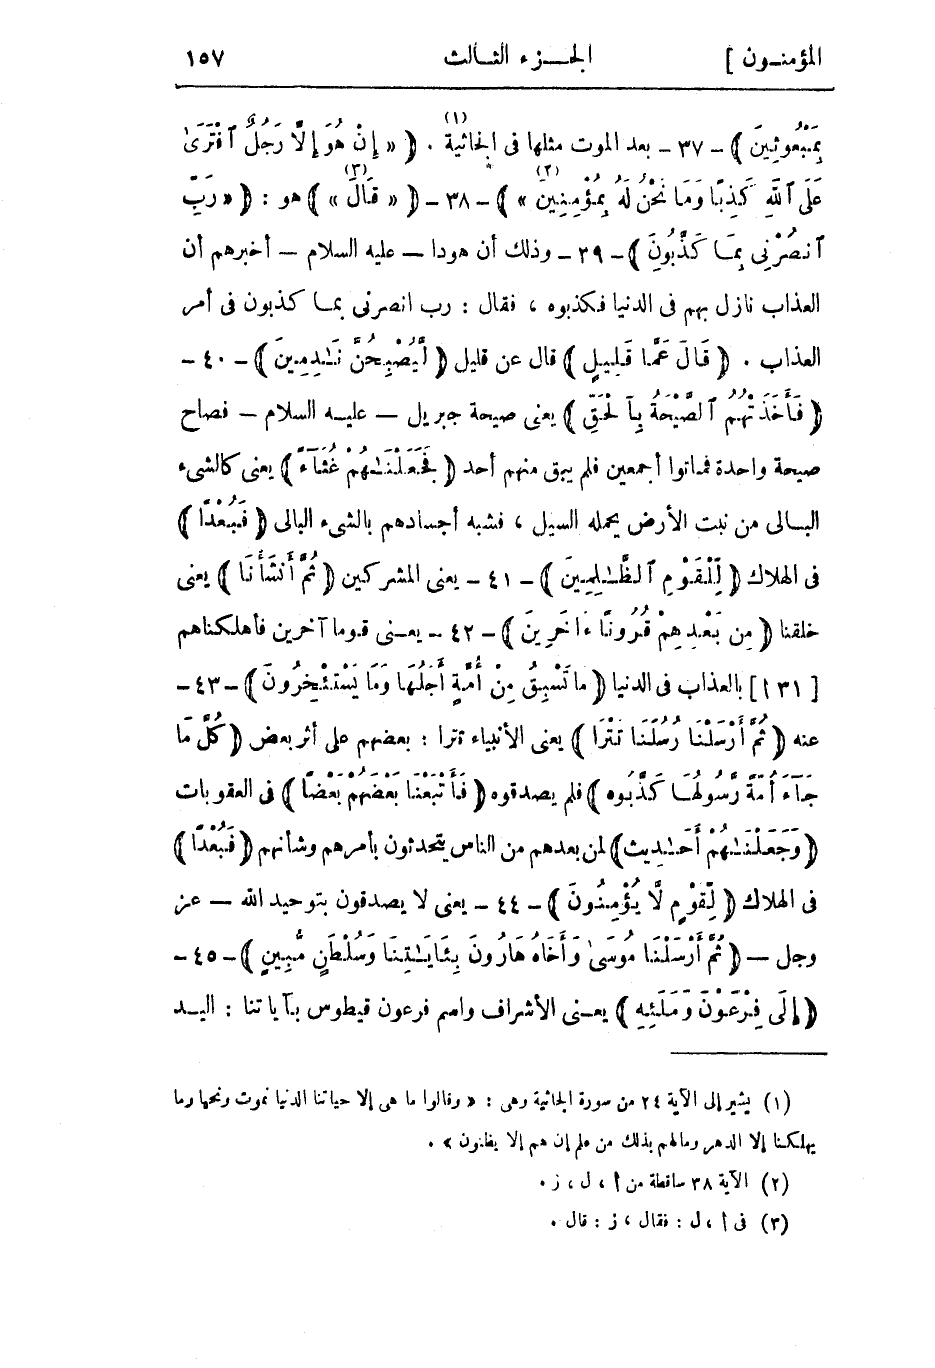 المؤمنـون ] الجـزء الثـالث ١٥٧
بِمَبْعُوثِينَ ) - ٣٧ - بعد الموت مثلها فى الجاثية (١) . ( « إِنْ هُوَ إِلَّا رَجُلٌ ٱفْتَرَىٰ
عَلَى ٱللَّهِ كَذِبًا وَمَا نَحْنُ لَهُ بِمُؤْمِنِينَ » (٢) ) - ٣٨ - ( « قَالَ » (٣) ) هو : ( « رَبِّ
ٱنصُرْنِى بِمَـا كَذَّبُونِ ) - ٣٩ - وذلك أن هودا — عليه السلام — أخبرهم أن
العذاب نازل بهم فى الدنيا فكذبوه ، فقال : رب انصرنى بمـا كذبون فى أمر
العذاب . ( قَالَ عَمَّا قَلِيلٍ ) قال عن قليل ( لَّيُصْبِحُنَّ نَـٰدِمِينَ ) - ٤٠ -
( فَأَخَذَتْهُمُ ٱلصَّيْحَةُ بِٱلْحَقِّ ) يعنى صيحة جبريل — عليـه السلام — فصاح
صيحة واحدة فمـاتوا أجمعين فلم يبق منهم أحد ( فَجَعَلْنَـٰهُمْ غُثَآءً ) يعنى كالشىء
البـالى من نبت الأرض يحمله السيل ، فشبه أجسادهم بالشىء البالى ( فَبُعْدًا )
فى الهلاك ( لِّلْقَوْمِ ٱلظَّـٰلِمِينَ ) - ٤١ - يعنى المشركين ( ثُمَّ أَنشَأْنَا ) يعنى
خلقنا ( مِن بَعْـدِهِمْ قُرُونًا ءَاخَرِينَ ) - ٤٢ - يعـنى قوما آخرين فأهلكناهم
[ ٣١ ا ] بالعذاب فى الدنيا ( مَا تَسْبِقُ مِنْ أُمَّةٍ أَجَلَهَا وَمَا يَسْتَـْٔخِرُونَ ) - ٤٣ -
عنه ( ثُمَّ أَرْسَلْنَا رُسُلَنَـا تَتْرَا ) يعنى الأنبياء تترا : بعضهم على أثر بعض ( كُلَّ مَا
جَآءَ أُمَّةً رَّسُولُهَـا كَذَّبُوهُ ) فلم يصدقوه ( فَأَتْبَعْنَا بَعْضَهُمْ بَعْضًا ) فى العقوبات
( وَجَعَلْنَـٰهُمْ أَحَـادِيثَ ) لمن بعدهم من الناس يتحدثون بأمرهم وشأنهم ( فَبُعْدًا )
فى الهلاك ( لِّقَوْمٍ لَّا يُؤْمِنُونَ ) - ٤٤ - يعنى لا يصدقون بتوحيد الله — عز
وجل — ( ثُمَّ أَرْسَلْنَا مُوسَىٰ وَأَخَاهُ هَارُونَ بِـَٔايَـٰتِنَا وَسُلْطَـٰنٍ مُّبِينٍ ) - ٤٥ -
( إِلَى فِرْعَوْنَ وَمَلَئِهِ ) يعـنى الأشراف واسم فرعون قيطوس بـآياتنا : اليـد
(١) يشير إلى الآية ٢٤ من سورة الجاثية وهى : « وقالوا ما هى إلا حياتنا الدنيا نموت ونحيا وما
يهلكنا إلا الدهر ومالهم بذلك من علم إن هم إلا يظنون » .
(٢) الآية ٣٨ ساقطة من أ ، ل ، ز .
(٣) فى أ ، ل : فقال ، ز : قال .